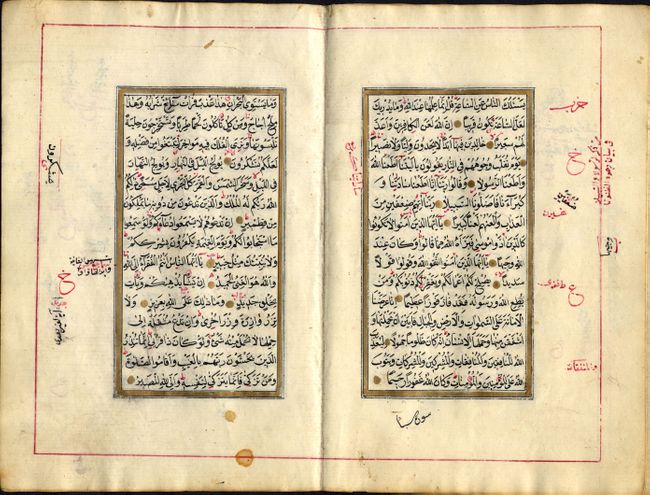 يسئلك الناس عن الساعة قل انما علمها عند الله وما يدريك
لعل الساعة تكون قريبا ان الله لعن الكافرين واعد
لهم سعيرا خالدين فيها ابدا لا يجدون وليا ولا نصيرا
يوم تقلب وجوههم في النار يقولون يا ليتنا اطعنا الله
واطعنا الرسولا وقالوا ربنا انا اطعنا سادتنا و
كبراءنا فاضلونا السبيلا ربنا آتهم ضعفين من
العذاب والعنهم لعنا كبيرا يا ايها الذين آمنوا لا تكونوا
كالذين آذوا موسى فبرأه الله مما قالوا وكان عند
الله وجيها يا ايها الذين آمنوا اتقوا الله وقولوا قولا
سديدا يصلح لكم اعمالكم ويغفر لكم ذنوبكم ومن
يطع الله ورسوله فقد فاز فوزا عظيما انا عرضنا
الامانة على السموات والارض والجبال فابين ان يحملنها و
اشفقن منها وحملها الانسان انه كان ظلوما جهولا ليعذب
الله المنافقين والمنافقات والمشركين والمشركات ويتوب
الله على المؤمنين والمؤمنات وكان الله غفورا رحيما
حزب
سورة سبا
وما يستوي البحران هذا عذب فرات سائغ شرابه وهذا
ملح اجاج ومن كل تأكلون لحما طريا وتستخرجون حلية
تلبسونها وترى الفلك فيه مواخر لتبتغوا من فضله و
لعلكم تشكرون يولج الليل في النهار ويولج النهار
في الليل وسخر الشمس والقمر كل يجري لاجل مسمى ذلكم الله
ربكم له الملك والذين تدعون من دونه ما يملكون
من قطمير ان تدعوهم لا يسمعوا دعاءكم ولو سمعوا
ما استجابوا لكم ويوم القيمة يكفرون بشرككم
ولا ينبئك مثل خبير يا ايها الناس انتم الفقراء الى الله
والله هو الغني الحميد ان يشأ يذهبكم ويأت
بخلق جديد وما ذلك على الله بعزيز ولا
تزر وازرة وزر اخرى وان تدع مثقلة الى
حملها لا يحمل منه شيء ولو كان ذا قربى انما تنذر
الذين يخشون ربهم بالغيب واقاموا الصلوة
ومن تزكى فانما يتزكى لنفسه والى الله المصير